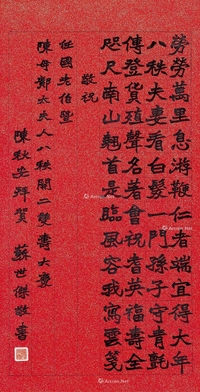 勞勞萬里息游鞭仁者端宜得大年
八秩夫妻看白髮一門孫子守青氈
傳登貨殖聲名著會祝耆英福壽全
咫尺南山翹首是臨風容我寫雲箋
敬祝
任國老伯暨
陳母鄭太夫人八秩開二雙壽大慶
陳秋安拜賀 蘇世傑敬書